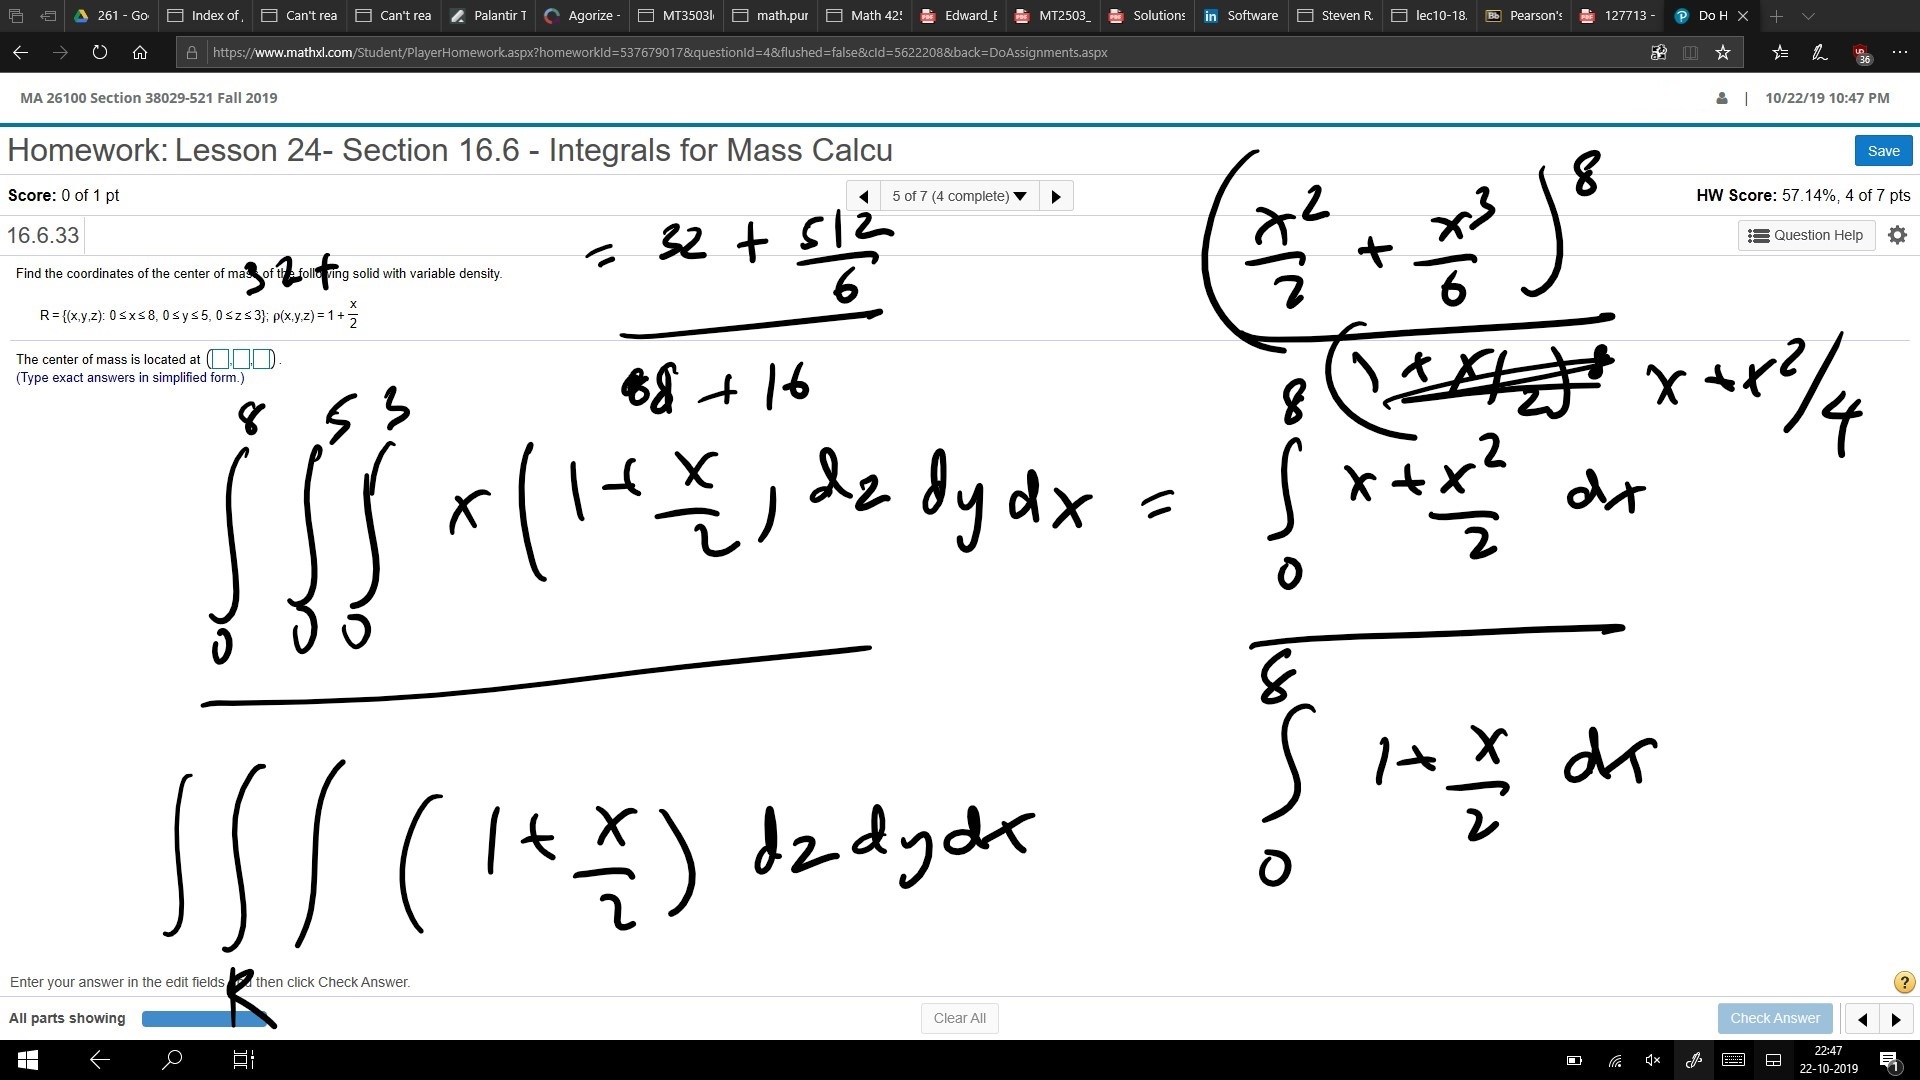 261 - Go Index of, Can't rea Can't rea Palantir T Agorize - MT3503l math.pur Math 42! Edward_E MT2503_ Solutions Software Steven R. lec10-18. Pearson's 127713 - Do H
https://www.mathxl.com/Student/PlayerHomework.aspx?homeworkId=537679017&questionId=4&flushed=false&cId=5622208&back=DoAssignments.aspx
36
MA 26100 Section 38029-521 Fall 2019 | 10/22/19 10:47 PM
Homework: Lesson 24- Section 16.6 - Integrals for Mass Calcu Save
Score: 0 of 1 pt 5 of 7 (4 complete) HW Score: 57.14%, 4 of 7 pts
16.6.33 Question Help
Find the coordinates of the center of mass of the following solid with variable density.
R = {(x,y,z): 0 ≤ x ≤ 8, 0 ≤ y ≤ 5, 0 ≤ z ≤ 3}; ρ(x,y,z) = 1 + x/2
The center of mass is located at (☐,☐,☐).
(Type exact answers in simplified form.)
32+
= 32 + 512/6
8 + 16
(x²/2 + x³/6)⁸
(1 + x/2)⁸ x + x²/4
∫₀⁸ ∫₀⁵ ∫₀³ x(1 + x/2) dz dy dx = ∫₀⁸ x + x²/2 dx
∫∫∫ (1 + x/2) dz dy dx
R
∫₀⁸ 1 + x/2 dx
Enter your answer in the edit fields and then click Check Answer. ?
All parts showing Clear All Check Answer
22:47
22-10-2019
1